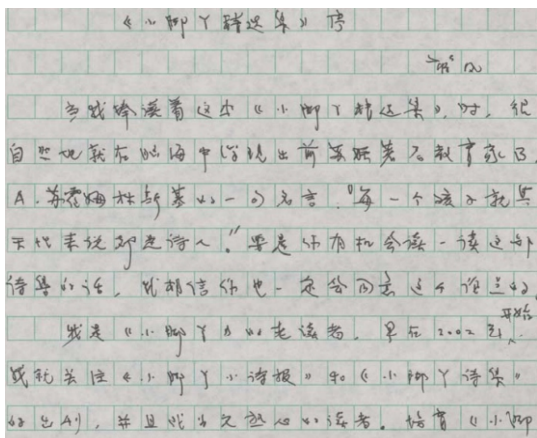 《小脚丫精选集》序
当我捧读着这本《小脚丫精选集》时,很
自然地就在脑海中浮现出前苏联著名教育家B.
A.苏霍姆林斯基的一句名言:“每一个孩子就其
天性来说都是诗人。”要是你有机会读一读这部
诗集的话,我相信你也一定会同意这个论点的。
我是《小脚丫》的老读者。早在2002年开始,
我就关注《小脚丫小诗报》和《小脚丫诗集》
的出刊,并且成为了热心的读者。